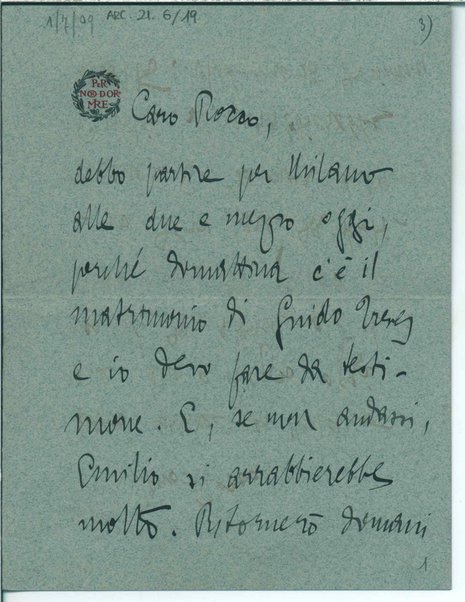 1/7/09 ARC. 21. 6/19
3)
PER
NON DOR
MIRE
Caro Rocco,
debbo partire per Milano
alle due e mezzo oggi,
perché domattina c'è il
matrimonio di Guido Treves
e io devo fare da testi-
mone. E, se non andassi,
Emilio si arrabbierebbe
molto. Ritornerò domani
1